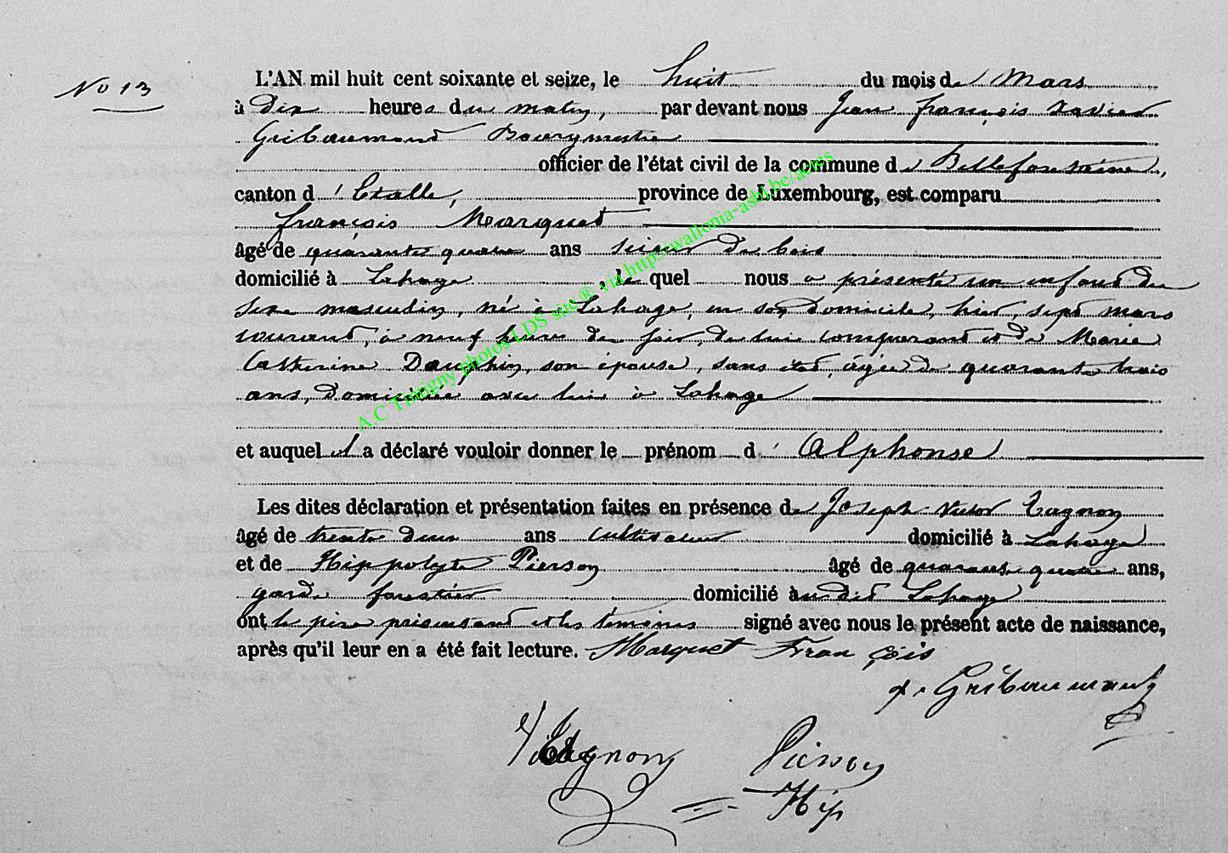 No 13
L'AN mil huit cent soixante et seize, le huit du mois de Mars
à Dix heures du matin, par devant nous Jean françois Xavier
Gribaumont Bourgmestre
officier de l'état civil de la commune de Bellefontaine,
canton d'Etalle, province de Luxembourg, est comparu
françois Marquet
âgé de quarante quatre ans scieur de bois
domicilié à Lahage, le quel nous a présenté un enfant du
sexe masculin, né à Lahage, en son domicile, hier, sept mars
courant, à neuf heures du soir, de lui comparant et de Marie
Catherine Dauphin, son épouse, sans état, âgée de quarante trois
ans, Domiciliée avec lui à Lahage
et auquel il a déclaré vouloir donner le prénom d'Alphonse
Les dites déclaration et présentation faites en présence de Joseph Victor Tagnon
âgé de trente deux ans cultivateur domicilié à Lahage
et de Hippolyte Pierson âgé de quarante quatre ans,
garde forestier domicilié au dit Lahage
ont le père présentant et les témoins signé avec nous le présent acte de naissance,
après qu'il leur en a été fait lecture. Marquet François
Gribaumont
Tagnon Pierson
Hip
A C Thibagny photos LDS site ® via http://wallonia-asbl.be/actes